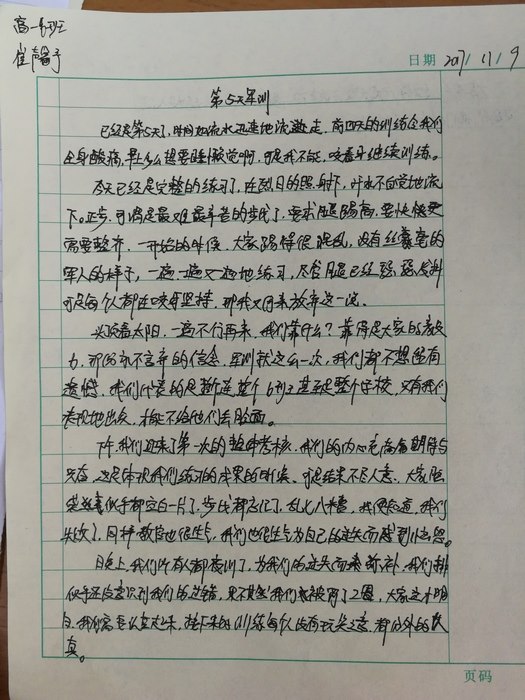 高一1班
崔馨予
日期 2017/11/9
第5天军训
已经是第5天了,时间如流水迅速地流逝走,前四天的训练令我们
全身酸痛,早上多么想要睡懒觉啊,可是我不能,咬着牙继续训练。
今天已经是完整的练习了,在烈日的照射下,汗水不自觉地流
下。正步,可谓是最难最辛苦的步伐了,要求腿踢高,要快候更
需要整齐,一开始的时候,大家踢得很混乱,没有丝毫的
军人的样子,一遍一遍又一遍地练习,尽管腿已经
可是每个人都在咬牙坚持,那我又何来放弃这一说。
头顶着太阳,一遍不行再来,我们靠什么?靠得是大家的毅
力,那份永不言弃的信念,军训就这么一次,我们都不想留有
遗憾,我们代表的是整个甚至是整个学校,只有我们
表现地出众,才能不给他们丢脸面。
下午,我们迎来了第一次的整体考核,我们的内心充满着期待与
兴奋,这是体现我们练习的成果的时候,可是结果不尽人意,大家脑
袋里似乎都空白一片了,步伐都忘记了,乱七八糟,我便知道,我们
失败了,同样教官也很生气,我们也很生气为自己的迷失而感到
晚上,我们所有人都夜训了,为我们的迷失而来弥补,我们排
似乎还没意识到我们的过错,果不其然我们被罚了2圈,大家这才明
白,我们需要认真起来,接下来的训练每个人没有玩笑之意,都份外的认
真。
页码